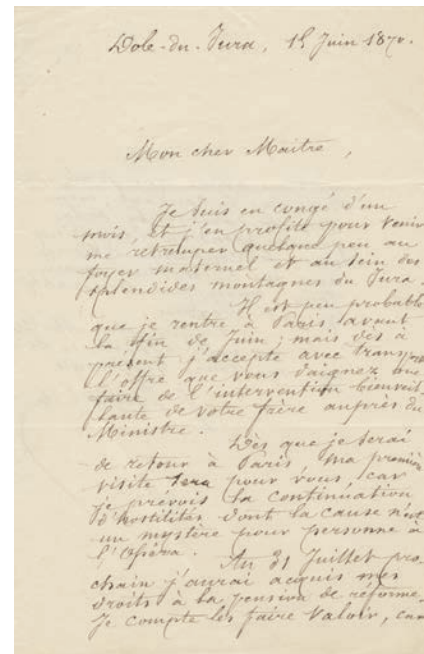 Dole-du-Jura, 15 Juin 1870.
Mon cher Maitre,
Je suis en congé d'un
mois, et j'en profite pour venir
me retremper quelque peu au
foyer maternel et au sein des
splendides montagnes du Jura.
Il est peu probable
que je rentre à Paris avant
la fin de Juin ; mais dès à
présent j'accepte avec transport
l'offre que vous daignez me
faire de l'intervention bienveil-
lante de votre frère auprès du
Ministre.
Dès que je serai
de retour à Paris ma première
visite sera pour vous, car
je prévois la continuation
d'hostilités dont la cause n'est
un mystère pour personne à
l'Opéra.
Au 31 Juillet pro-
chain j'aurai acquis mes
droits à la pension de réforme.
Je compte les faire valoir, car